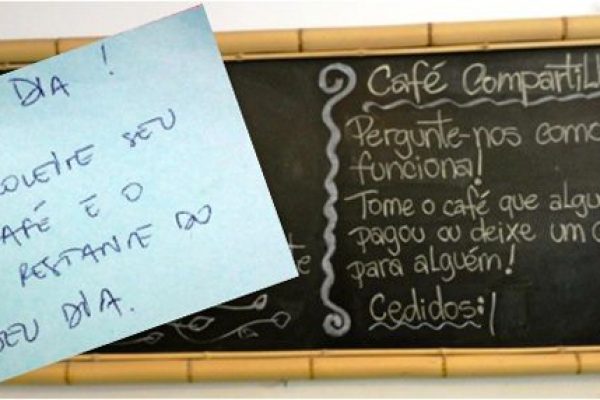 DIA!
SEU
CAFÉ E O
RESTANTE DO
SEU DIA.
Café Compartil
Pergunte-nos como
funciona!
Tome o café que algu
pagou ou deixe um c
para alguém!
Cedidos:|